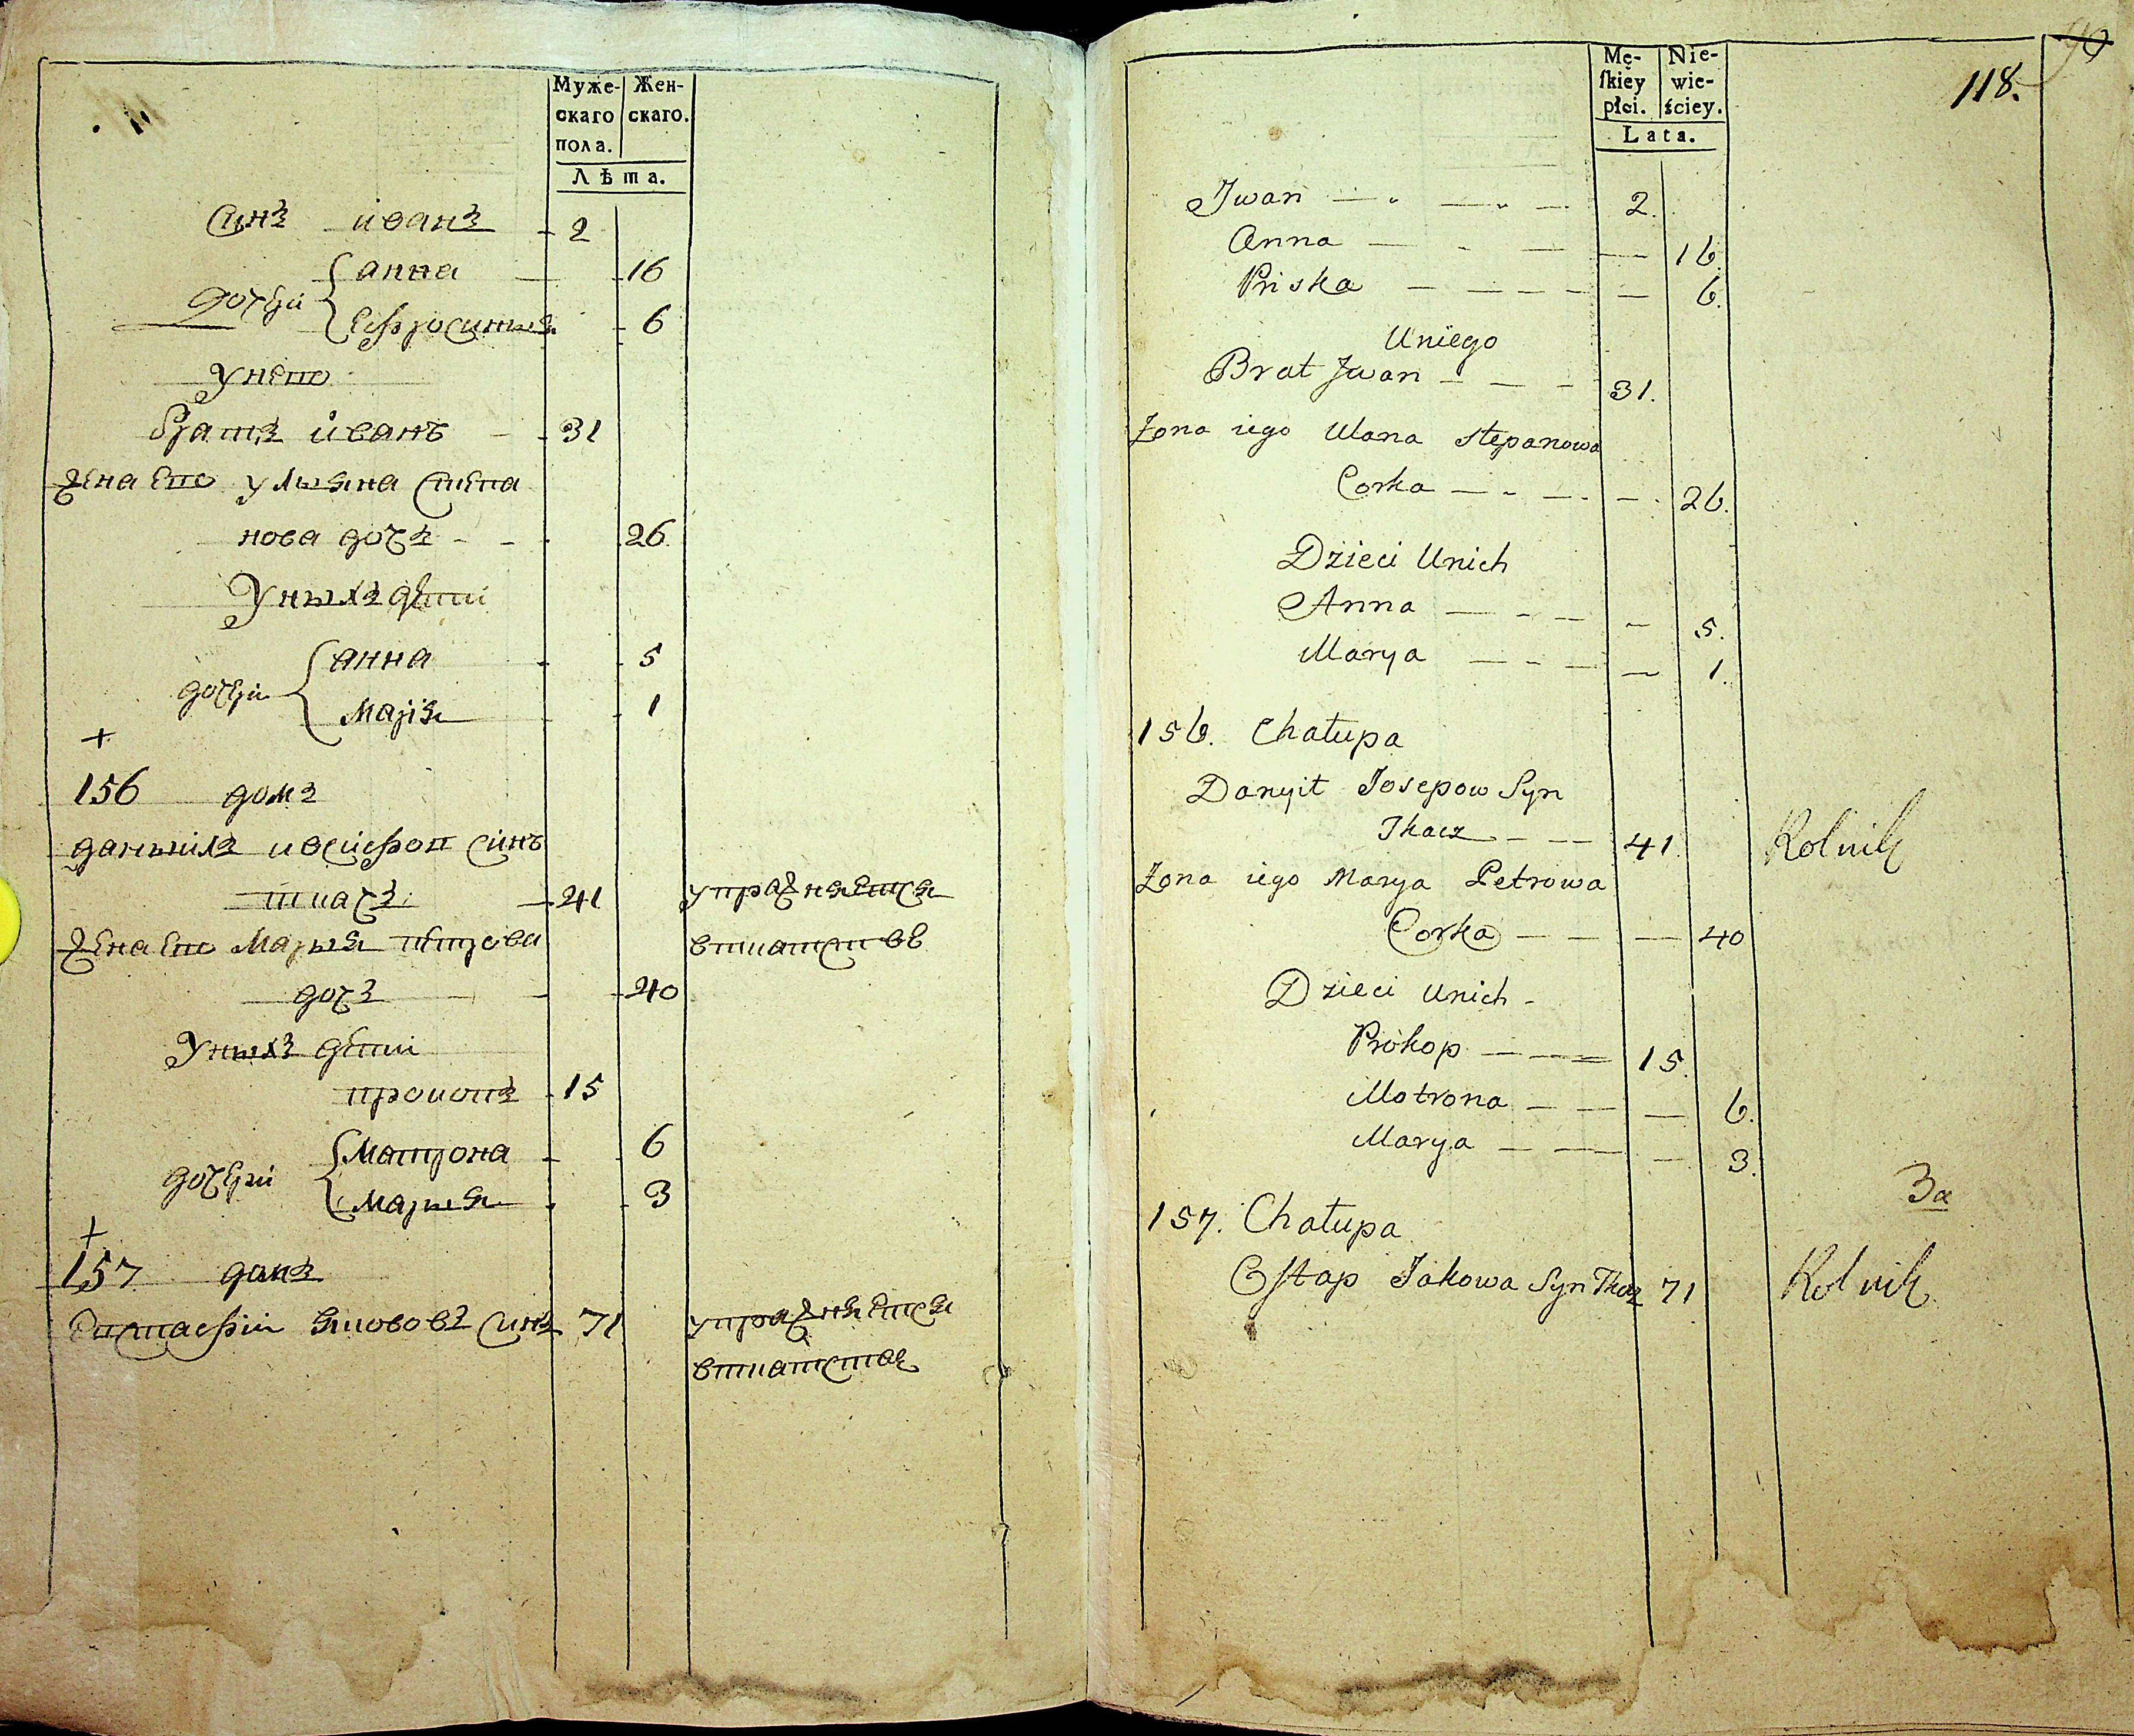 Муже-
скаго
пола.
Жен-
скаго.
Лѣта.
Синъ иванъ 2
дочери
анна 16
Ефросиния 6
У него
братъ иванъ 31
Жена его ульяна степа
нова дочъ 26
У ныхъ дети
дочери
анна 5
Марія 1
+
156 домъ
даныилъ иосифов синъ
ткачъ 41 упражняется
Жена его Марья петрова вткатствѣ
дочъ 40
У ныхъ дети
прокопъ 15
дочери
Матрона 6
Марыя 3
+
157 домъ
Евстафий яковъвъ синъ 71 упражняется
вткатстве
90
118.
Mę-
skiey
płci.
Nie-
wie-
ściey.
Lata.
Jwan 2.
Anna 16.
Priska 6.
Uniego
Brat Jwan 31.
Zona iego Ulana Stepanowa
Corka 26.
Dzieci Unich
Anna 5.
Marya 1.
156. Chałupa
Danyił Josepow Syn
Tkacz 41. Rolnik
Zona iego Marya Petrowa
Corka 40
Dzieci Unich
Prokop 15.
Motrona 6.
Marya 3.
3a
157. Chałupa
Ostap Jakowa Syn Tkacz 71 Rolnik